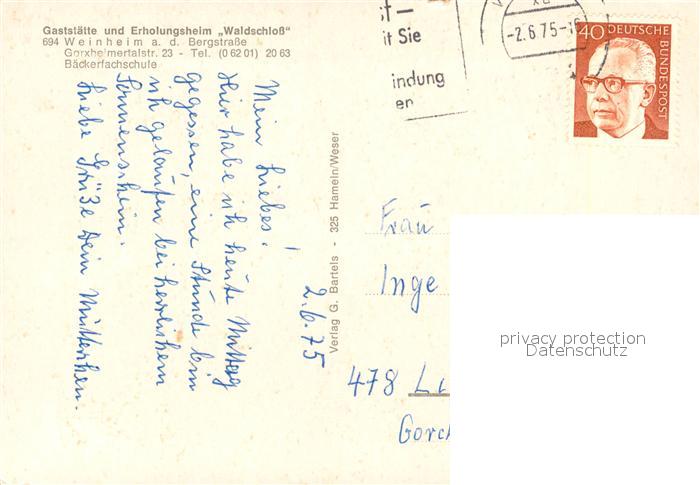 Gaststätte und Erholungsheim „Waldschloß"
694 Weinheim a. d. Bergstraße
Gorxheimertalstr. 23 - Tel. (0 62 01) 20 63
Bäckerfachschule
it Sie
indung
en
-2.6.75-1
40 DEUTSCHE
BUNDESPOST
Mein Liebes!
Hier habe ich heute Mittag
gegessen, eine Stunde bin
ich gelaufen bei herrlichem
Sonnenschein.
Liebe Grüße Dein Mütterchen.
2.6.75
Verlag G. Bartels - 325 Hameln/Weser
Frau
Inge
478 Li
Gorch
privacy protection
Datenschutz